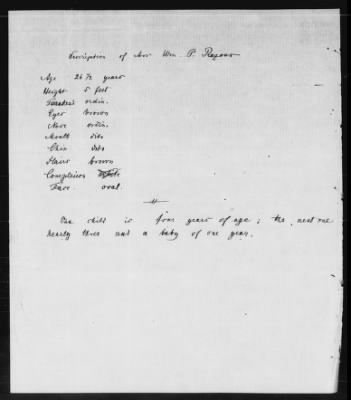 Description of Mrs Wm. P. Ragone
Age 26 ½ years
Height 5 feet
Forehead ordin.
Eyes brown
Nose ordin.
Mouth dito
Chin dito
Hair brown
Complexion
Face oval.
One child is four years of age; the next one
nearly three and a baby of one year.